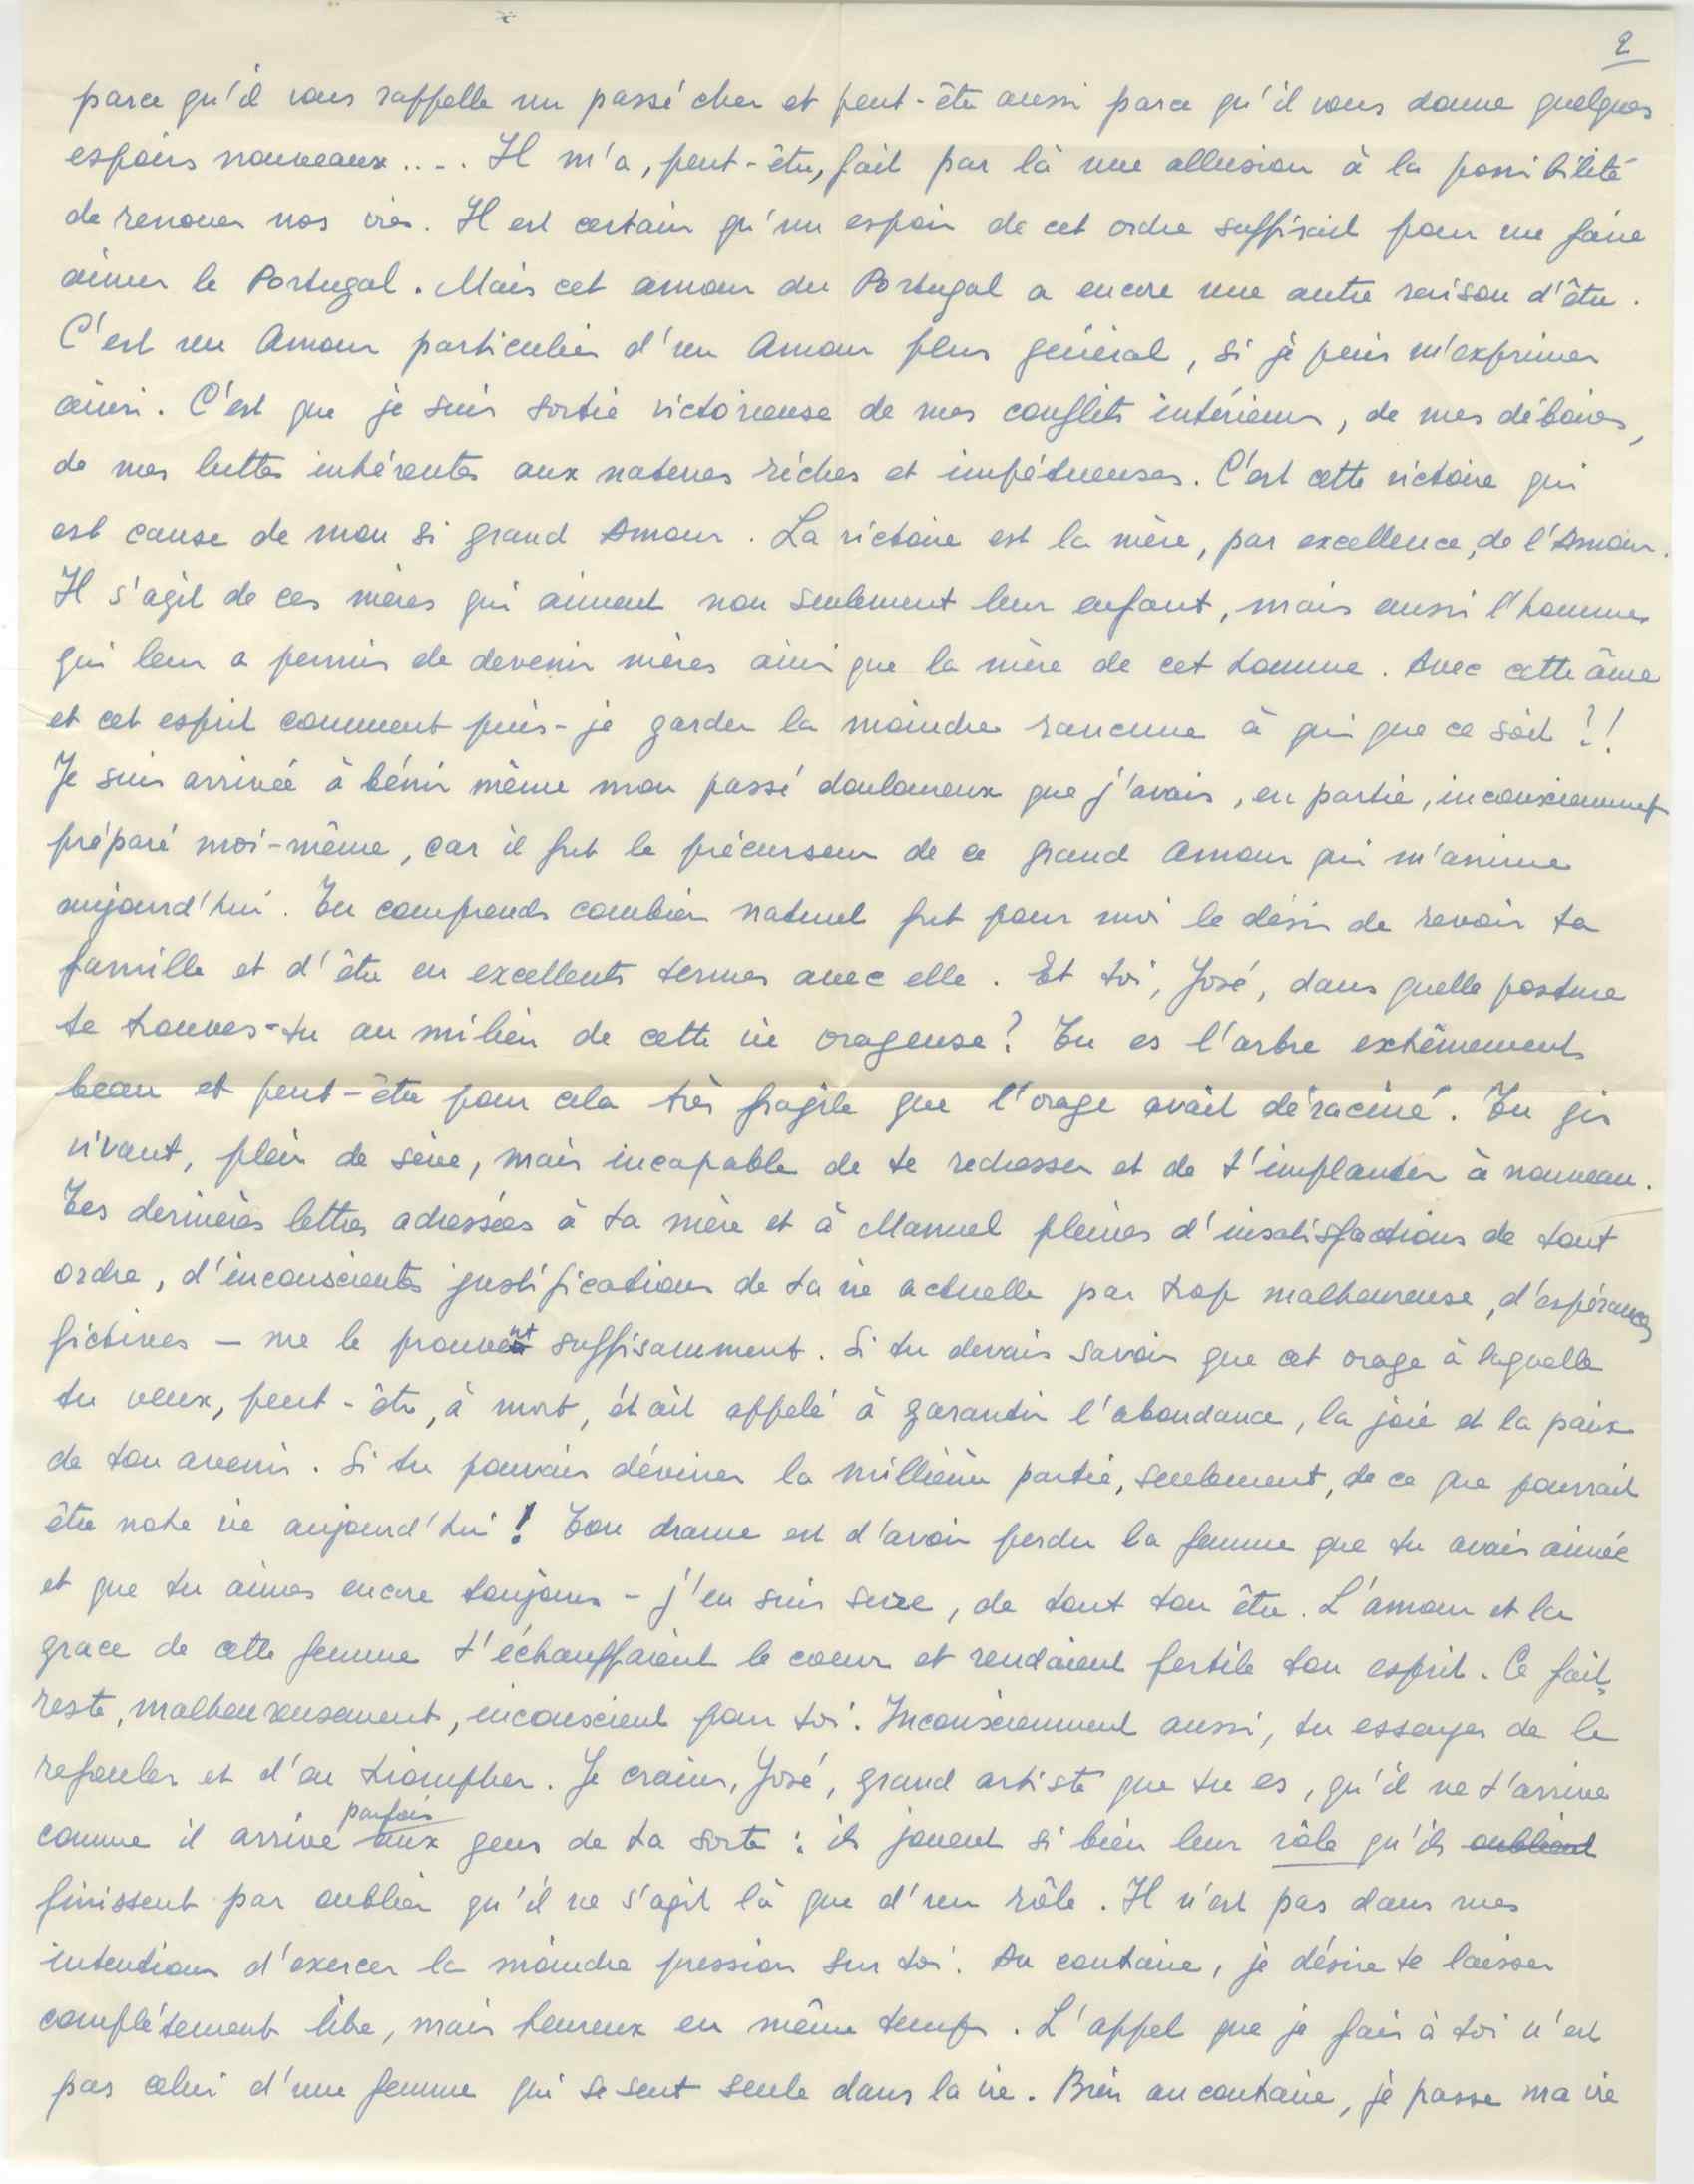 2
parce qu'il vous rappelle un passé cher et peut-être aussi parce qu'il vous donne quelques
espoirs nouveaux.... Il m'a, peut-être, fait par là une allusion à la possibilité
de renouer nos vies. Il est certain qu'un espoir de cet ordre suffirait pour me faire
aimer le Portugal. Mais cet amour du Portugal a encore une autre raison d'être.
C'est un Amour particulier d'un Amour plus général, si je puis m'exprimer
ainsi. C'est que je suis sortie victorieuse de mes conflits intérieurs, de mes déboires,
de mes luttes inhérentes aux natures riches et impétueuses. C'est cette victoire qui
est cause de mon si grand Amour. La victoire est la mère, par excellence, de l'Amour.
Il s'agit de ces mères qui aiment non seulement leur enfant, mais aussi l'homme
qui leur a permis de devenir mères ainsi que la mère de cet homme. Avec cette âme
et cet esprit comment puis-je garder la moindre rancune à qui que ce soit ?!
Je suis arrivée à bénir même mon passé douloureux que j'avais, en partie, inconsciemment
préparé moi-même, car il fut le précurseur de ce grand Amour qui m'anime
aujourd'hui. Tu comprends combien naturel fut pour moi le désir de revoir ta
famille et d'être en excellents termes avec elle. Et toi, José, dans quelle posture
te trouves-tu au milieu de cette vie orageuse? Tu es l'arbre extrêmement
beau et peut-être pour cela très fragile que l'orage avait déraciné. Tu gis
vivant, plein de sève, mais incapable de te redresser et de t'implanter à nouveau.
Tes dernières lettres adressées à ta mère et à Manuel pleines d'insatisfactions de tout
ordre, d'inconscientes justifications de ta vie actuelle par trop malheureuse, d'espérances
fictives - me le prouvent suffisamment. Si tu devais savoir que cet orage à laquelle
tu veux, peut-être, à mort, était appelé à garantir l'abondance, la joie et la paix
de ton avenir. Si tu pouvais deviner la millième partie, seulement, de ce que pourrait
être notre vie aujourd'hui ! Ton drame est d'avoir perdu la femme que tu avais aimée
et que tu aimes encore toujours - j'en suis sure, de tout ton être. L'amour et la
grace de cette femme t'échauffaient le coeur et rendaient fertile ton esprit. Ce fait,
reste, malheureusement, inconscient pour toi. Inconsciemment aussi, tu essayes de le
refouler et d'en triompher. Je crains, José, grand artiste que tu es, qu'il ne t'arrive
comme il arrive parfois aux gens de ta sorte : ils jouent si bien leur rôle qu'ils oublient
finissent par oublier qu'il ne s'agit là que d'un rôle. Il n'est pas dans mes
intentions d'exercer la moindre pression sur toi. Au contraire, je désire te laisser
complétement libre, mais heureux en même temps. L'appel que je fais à toi n'est
pas celui d'une femme qui se sent seule dans la vie. Bien au contraire, je passe ma vie